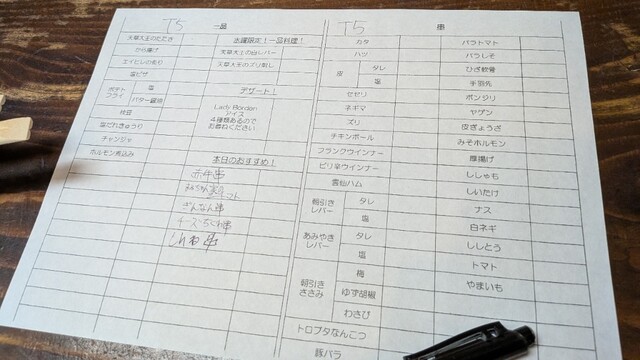 T5
一品
天草大王のたたき
から揚げ
エイヒレの炙り
塩 バター醤油
枝豆
塩だれきゅうり
チャンジャ
ホルモン煮込み
出曜限定!一品料理!
天草大王の白レバー
天草大王のズリ刺し
デザート!
Lady Borden
アイス
4種類あるので
お尋ねください
本日のおすすめ!
赤牛串
ぎんなん串
チーズちくわ串
T5
串
カタ
ハツ
皮 タレ
塩
セセリ
ネギマ
ズリ
チキンボール
フランクウインナー
ピリ辛ウインナー
雲仙ハム
朝引きレバー タレ
塩
あみやきレバー タレ
塩
朝引きささみ 梅
ゆず胡椒
わさび
トロブタなんこつ
豚バラ
バラトマト
バラしそ
ひざ軟骨
手羽先
ボンジリ
ヤゲン
皮ぎょうざ
みそホルモン
厚揚げ
ししゃも
しいたけ
ナス
白ネギ
ししとう
トマト
やまいも